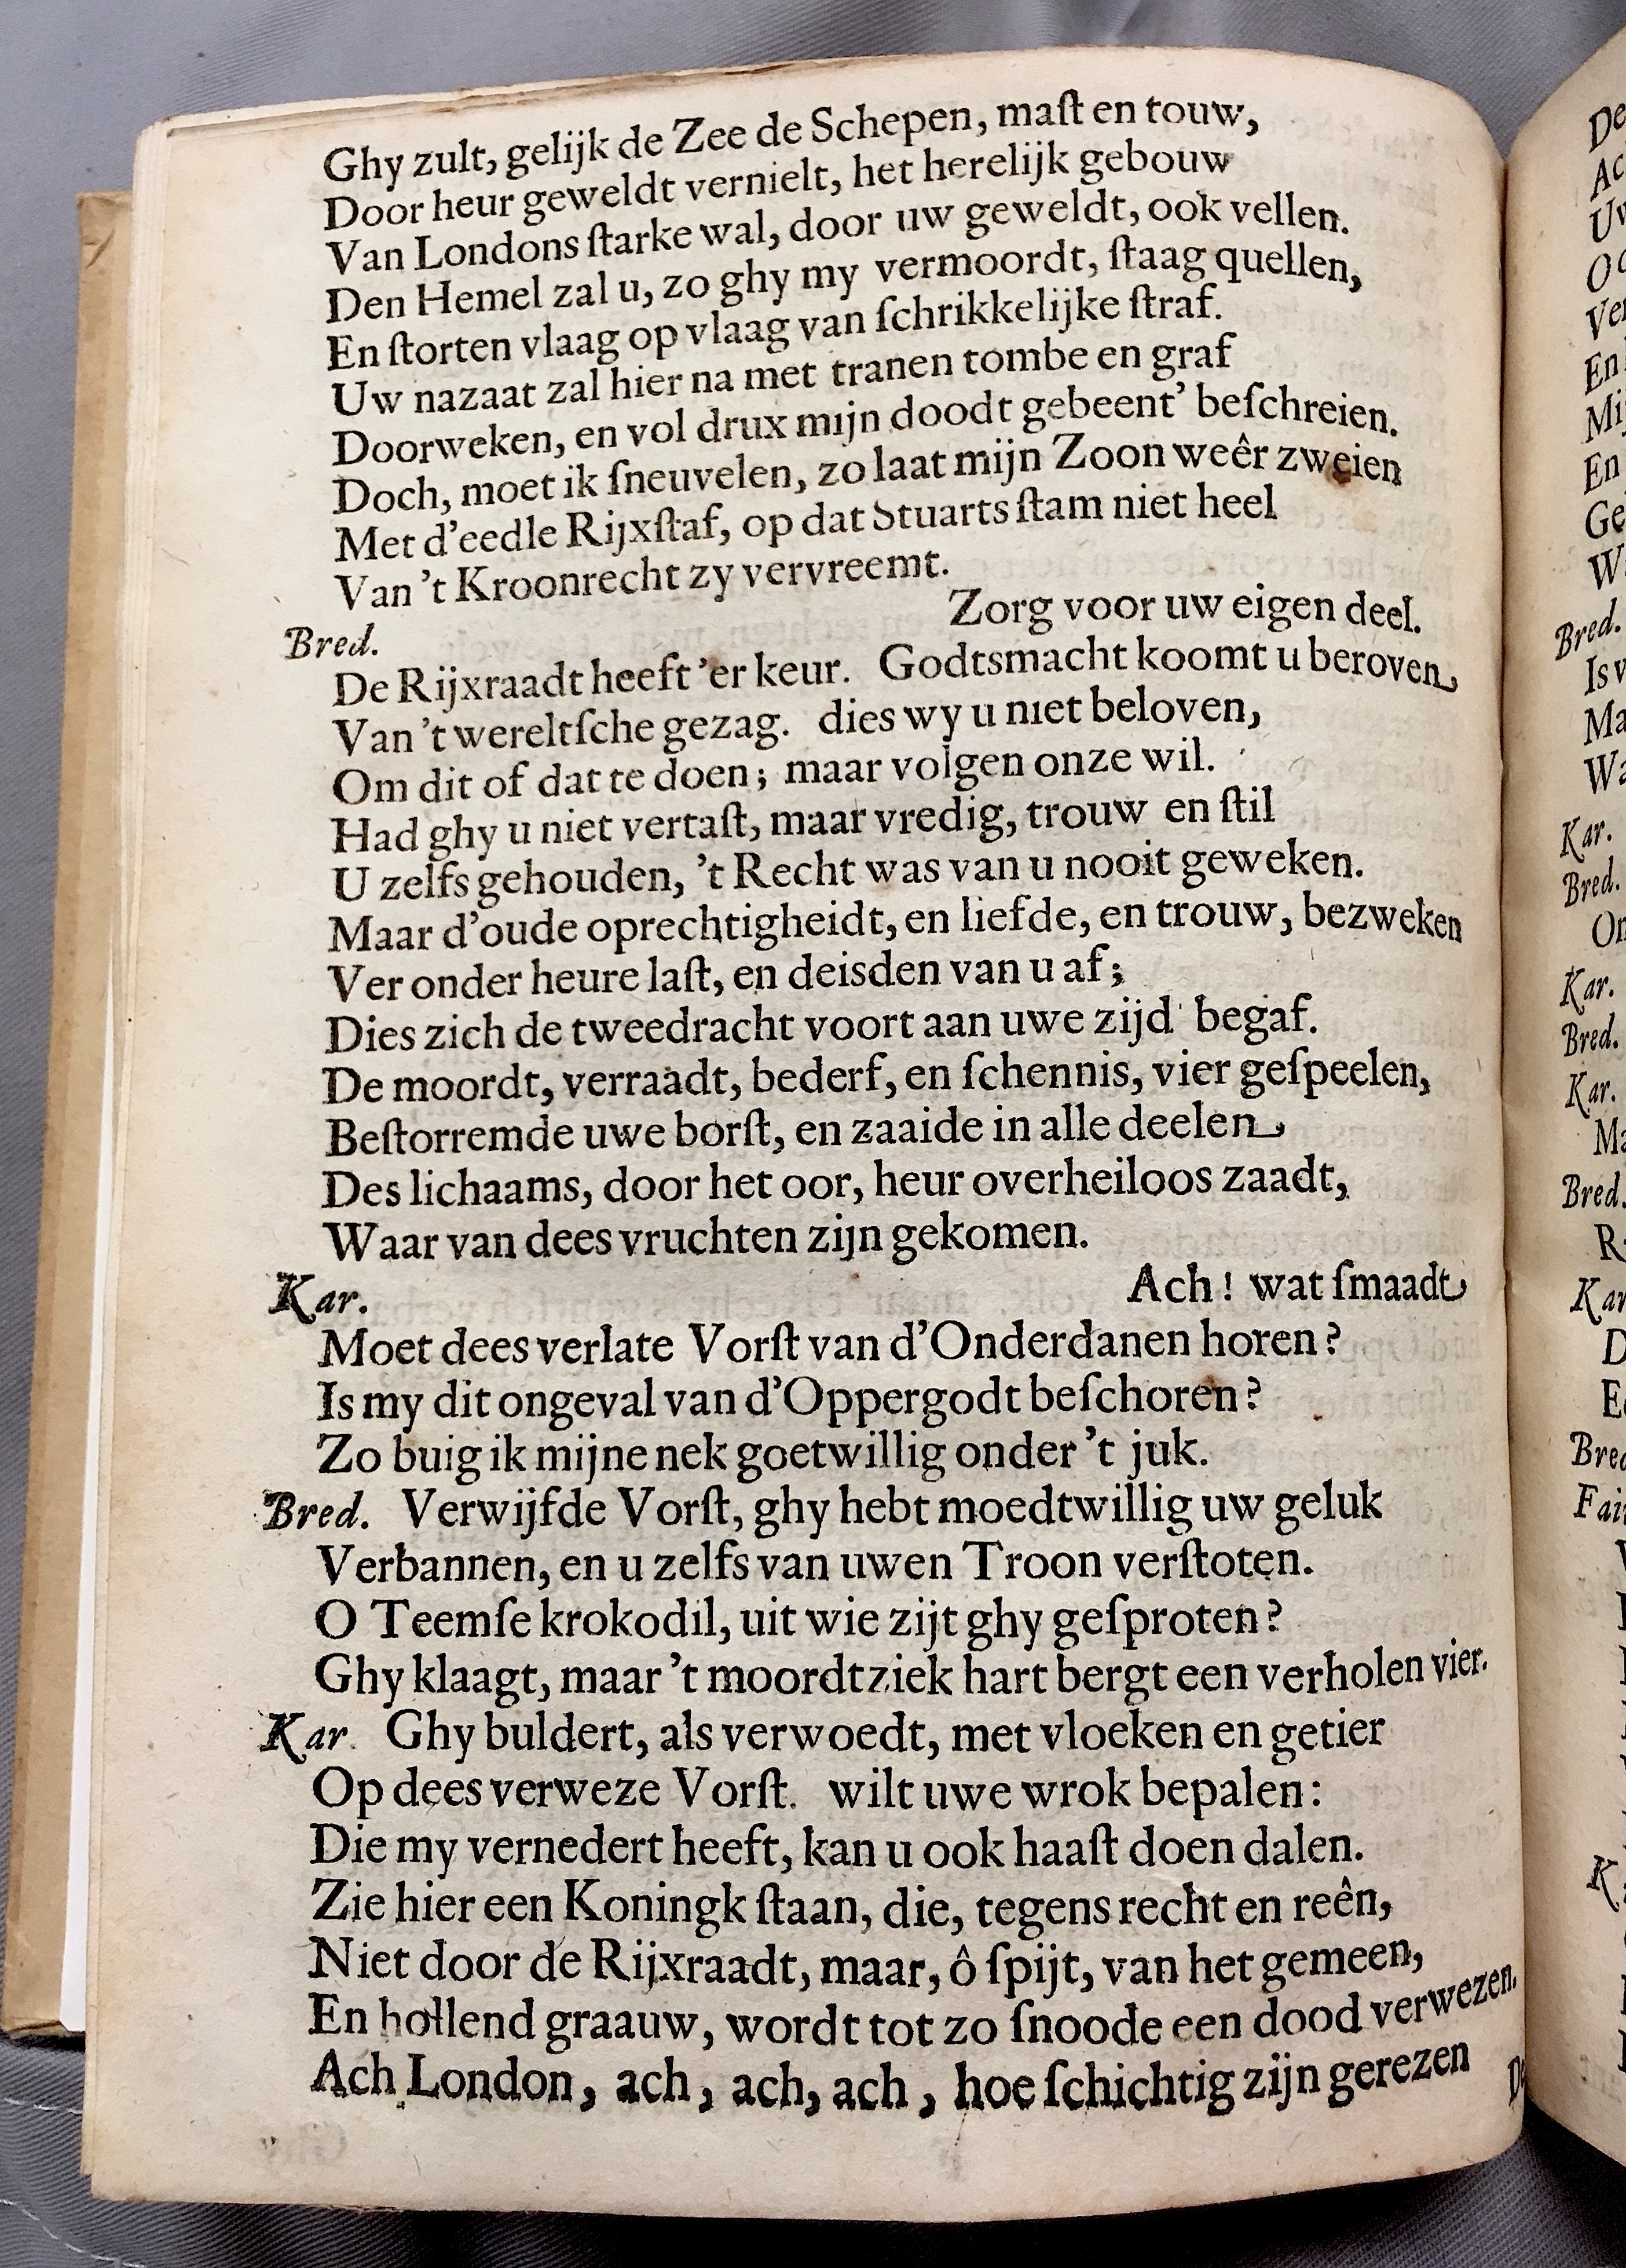 Ghy zult, gelijk de Zee de Schepen, maſt en touw,
Door heur geweldt vernielt, het herelijk gebouw
Van Londons ſtarke wal, door uw geweldt, ook vellen.
Den Hemel zal u, zo ghy my vermoordt, ſtaag quellen,
En ſtorten vlaag op vlaag van ſchrikkelijke ſtraf.
Uw nazaat zal hier na met tranen tombe en graf
Doorweken, en vol drux mijn doodt gebeent' beſchreien.
Doch, moet ik ſneuvelen, zo laat mijn Zoon weêr zweien
Met d'eedle Rijxſtaf, op dat Stuarts ſtam niet heel
Van 't Kroonrecht zy vervreemt.
Bred. Zorg voor uw eigen deel.
De Rijxraadt heeft 'er keur. Godtsmacht koomt u beroven
Van 't wereltſche gezag. dies wy u niet beloven,
Om dit of dat te doen; maar volgen onze wil.
Had ghy u niet vertaſt, maar vredig, trouw en ſtil
U zelfs gehouden, 't Recht was van u nooit geweken.
Maar d'oude oprechtigheidt, en liefde, en trouw, bezweken
Ver onder heure laſt, en deisden van u af;
Dies zich de tweedracht voort aan uwe zijd' begaf.
De moordt, verraadt, bederf, en ſchennis, vier geſpeelen,
Beſtorremde uwe borſt, en zaaide in alle deelen
Des lichaams, door het oor, heur overheiloos zaadt,
Waar van dees vruchten zijn gekomen.
Kar. Ach! wat ſmaadt
Moet dees verlate Vorſt van d'Onderdanen horen?
Is my dit ongeval van d'Oppergodt beſchoren?
Zo buig ik mijne nek goetwillig onder 't juk.
Bred. Verwijfde Vorſt, ghy hebt moedtwillig uw geluk
Verbannen, en u zelfs van uwen Troon verſtoten.
O Teemſe krokodil, uit wie zijt ghy geſproten?
Ghy klaagt, maar 't moordtziek hart bergt een verholen vier.
Kar. Ghy buldert, als verwoedt, met vloeken en getier
Op dees verweze Vorſt. wilt uwe wrok bepalen:
Die my vernedert heeft, kan u ook haaſt doen dalen.
Zie hier een Koningk ſtaan, die, tegens recht en reên,
Niet door de Rijxraadt, maar, ô ſpijt, van het gemeen,
En hollend graauw, wordt tot zo ſnoode een dood verwezen.
Ach London, ach, ach, ach, hoe ſchichtig zijn gerezen
De
Ac
Ver
En
Mij
En
Ge
Bred.
Is v
Ma
Wa
Kar.
Bred.
On
Kar.
Bred.
Kar.
Ma
Bred.
Kar
Bred
Fair